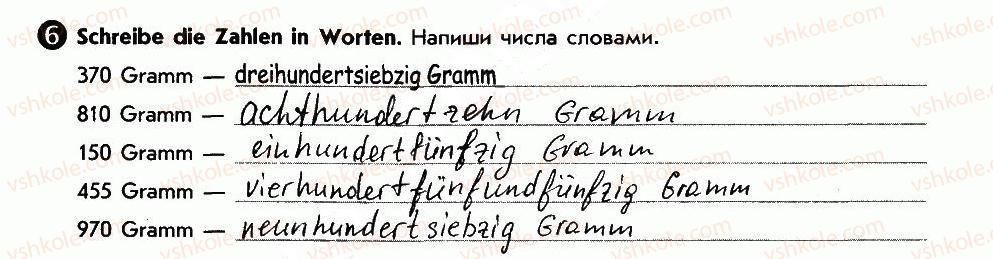 6 Schreibe die Zahlen in Worten. Напиши числа словами.
370 Gramm — dreihundertsiebzig Gramm
810 Gramm — achthundertzehn Gramm
150 Gramm — einhundertfünfzig Gramm
455 Gramm — vierhundertfünfundfünfzig Gramm
970 Gramm — neunhundertsiebzig Gramm